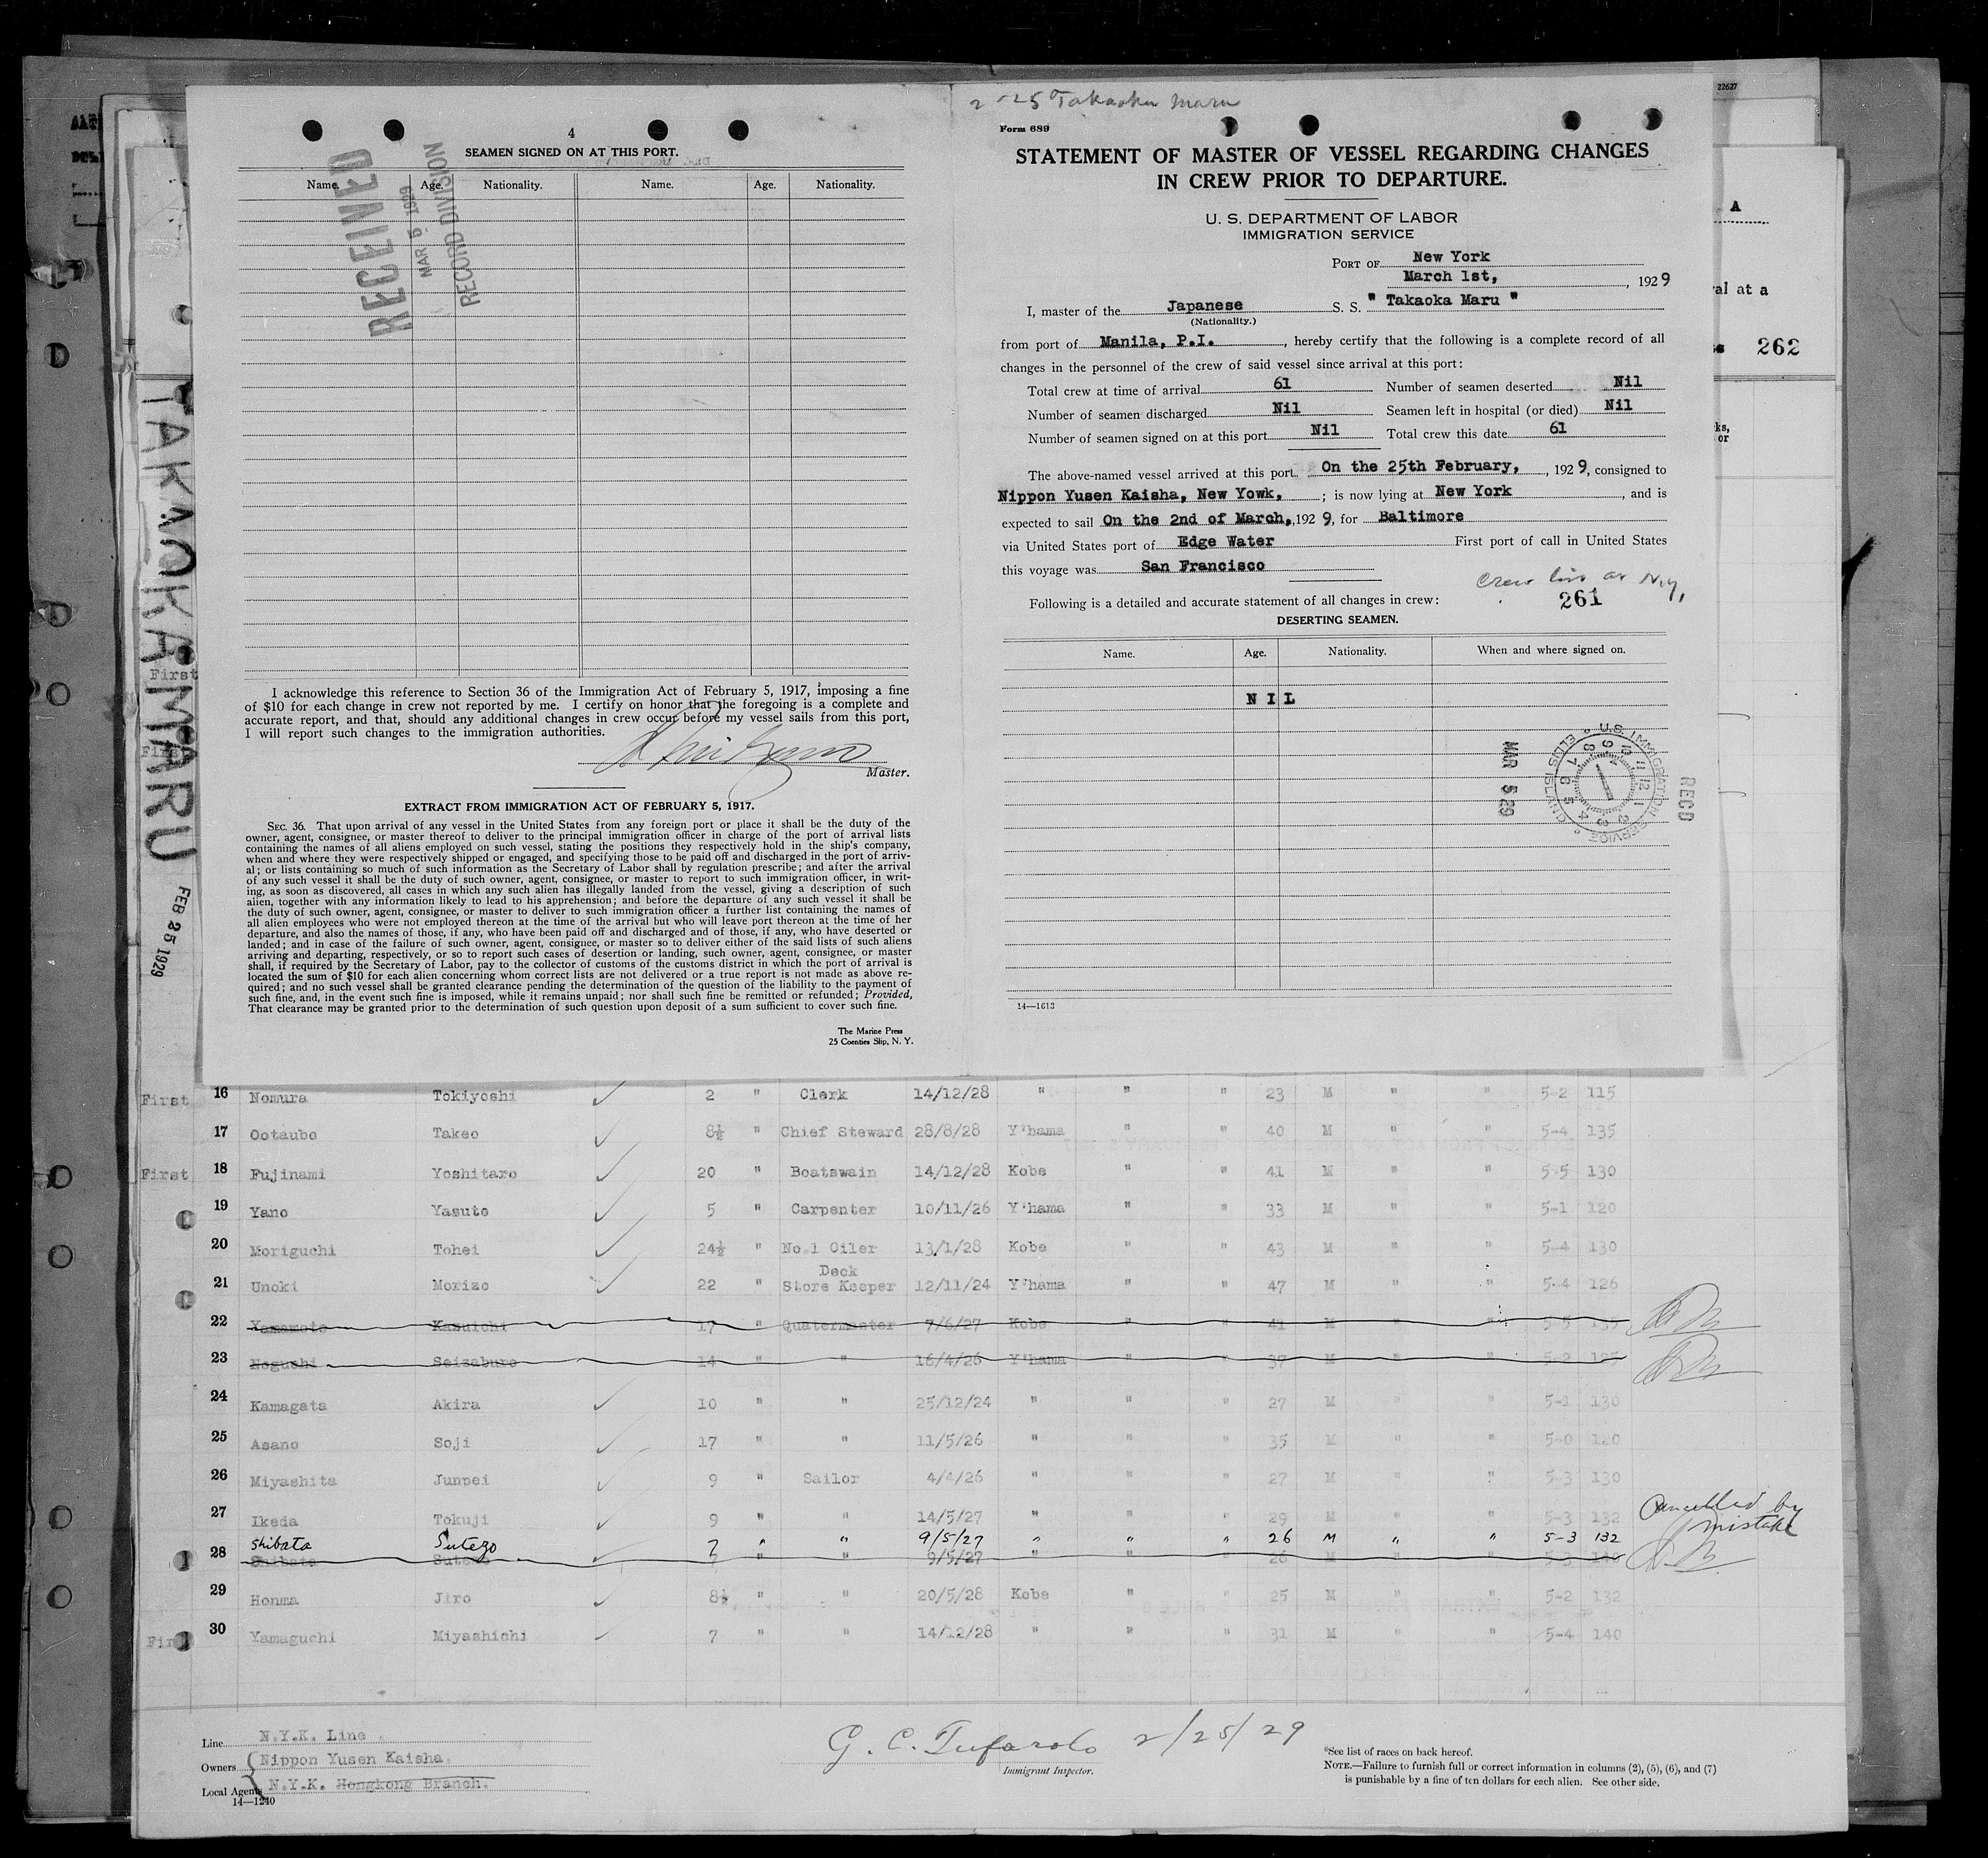 2-25 Takaoka Maru
22627
4
SEAMEN SIGNED ON AT THIS PORT.
Name. Age. Nationality. Name. Age. Nationality.
RECEIVED
MAR 5 1929
RECORD DIVISION
I acknowledge this reference to Section 36 of the Immigration Act of February 5, 1917, imposing a fine
of $10 for each change in crew not reported by me. I certify on honor that the foregoing is a complete and
accurate report, and that, should any additional changes in crew occur before my vessel sails from this port,
I will report such changes to the immigration authorities.
Master.
EXTRACT FROM IMMIGRATION ACT OF FEBRUARY 5, 1917.
SEC. 36. That upon arrival of any vessel in the United States from any foreign port or place it shall be the duty of the
owner, agent, consignee, or master thereof to deliver to the principal immigration officer in charge of the port of arrival lists
containing the names of all aliens employed on such vessel, stating the positions they respectively hold in the ship's company,
when and where they were respectively shipped or engaged, and specifying those to be paid off and discharged in the port of arriv-
al; or lists containing so much of such information as the Secretary of Labor shall by regulation prescribe; and after the arrival
of any such vessel it shall be the duty of such owner, agent, consignee, or master to report to such immigration officer, in writ-
ing, as soon as discovered, all cases in which any such alien has illegally landed from the vessel, giving a description of such
alien, together with any information likely to lead to his apprehension; and before the departure of any such vessel it shall be
the duty of such owner, agent, consignee, or master to deliver to such immigration officer a further list containing the names of
all alien employees who were not employed thereon at the time of the arrival but who will leave port thereon at the time of her
departure, and also the names of those, if any, who have been paid off and discharged and of those, if any, who have deserted or
landed; and in case of the failure of such owner, agent, consignee, or master so to deliver either of the said lists of such aliens
arriving and departing, respectively, or so to report such cases of desertion or landing, such owner, agent, consignee, or master
shall, if required by the Secretary of Labor, pay to the collector of customs of the customs district in which the port of arrival is
located the sum of $10 for each alien concerning whom correct lists are not delivered or a true report is not made as above re-
quired; and no such vessel shall be granted clearance pending the determination of the question of the liability to the payment of
such fine, and, in the event such fine is imposed, while it remains unpaid; nor shall such fine be remitted or refunded; Provided,
That clearance may be granted prior to the determination of such question upon deposit of a sum sufficient to cover such fine.
The Marine Press
25 Coenties Slip, N. Y.
Form 689
STATEMENT OF MASTER OF VESSEL REGARDING CHANGES
IN CREW PRIOR TO DEPARTURE.
U. S. DEPARTMENT OF LABOR
IMMIGRATION SERVICE
PORT OF New York
March 1st, , 1929
I, master of the Japanese S. S. " Takaoka Maru "
(Nationality.)
from port of Manila, P.I. , hereby certify that the following is a complete record of all
changes in the personnel of the crew of said vessel since arrival at this port:
Total crew at time of arrival 61 Number of seamen deserted Nil
Number of seamen discharged Nil Seamen left in hospital (or died) Nil
Number of seamen signed on at this port Nil Total crew this date 61
The above-named vessel arrived at this port On the 25th February, , 1929, consigned to
Nippon Yusen Kaisha, New Yowk, ; is now lying at New York , and is
expected to sail On the 2nd of March, 1929, for Baltimore
via United States port of Edge Water First port of call in United States
this voyage was San Francisco
Crew list at N.Y,
Following is a detailed and accurate statement of all changes in crew: 261
DESERTING SEAMEN.
Name. Age. Nationality. When and where signed on.
NIL
MAR 5 29
U.S. IMMIGRATION SERVICE ELLIS ISLAND
RECD
14—1613
A
al at a
262
ks,
or
TAKAOKA MARU
FEB 25 1929
First
First
First 16 Nomura Tokiyoshi 2 " Clerk 14/12/28 " " " 23 M " " 5-2 115
17 Ootaubo Takeo 8½ " Chief Steward 28/8/28 Y'hama " " 40 M " " 5-4 135
First 18 Fujinami Yoshitaro 20 " Boatswain 14/12/28 Kobe " " 41 M " " 5-5 130
19 Yano Yasuto 5 " Carpenter 10/11/26 Y'hama " " 33 M " " 5-1 120
20 Moriguchi Tohei 24½ " No.1 Oiler 13/1/28 Kobe " " 43 M " " 5-4 130
21 Unoki Morizo 22 " Deck Store Keeper 12/11/24 Y'hama " " 47 M " " 5-4 126
22 Yamamoto Kazuichi 17 " Quatermaster 7/6/27 Kobe " " 41 M " " 5-5 135
23 Noguchi Seizaburo 14 " " 16/4/26 Y'hama " " 37 M " " 5-2 125
24 Kamagata Akira 10 " " 25/12/24 " " " 27 M " " 5-1 130
25 Asano Soji 17 " " 11/5/26 " " " 35 M " " 5-0 120
26 Miyashita Junpei 9 " Sailor 4/4/26 " " " 27 M " " 5-3 130
27 Ikeda Tokuji 9 " " 14/5/27 " " " 29 M " " 5-3 132
Cancelled by mistake
Shibata Sutezo 7 " " 9/5/27 " " " 26 M " " 5-3 132
28 Shibata 7 " " 9/5/27 " " 26 M " " 5-3
29 Honma Jiro 8½ " " 20/5/28 Kobe " " 25 M " " 5-2 132
First 30 Yamaguchi Miyashichi 7 " " 14/12/28 " " " 31 M " " 5-4 140
Line N.Y.K. Line
Owners Nippon Yusen Kaisha.
Local Agents N.Y.K. Hongkong Branch.
14—1240
G. C. Tufarolo 2/25/29
Immigrant Inspector.
*See list of races on back hereof.
NOTE.—Failure to furnish full or correct information in columns (2), (5), (6), and (7)
is punishable by a fine of ten dollars for each alien. See other side.